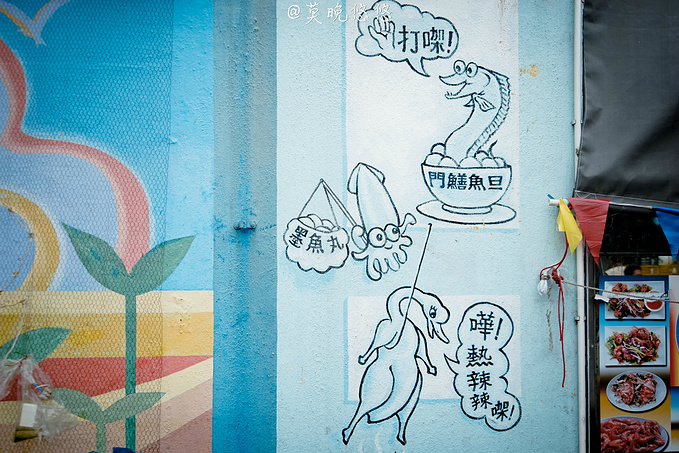 @莫晚悠悠
打㗎!
門鱔魚旦
墨魚丸
嘩!
熱
辣
辣
㗎!